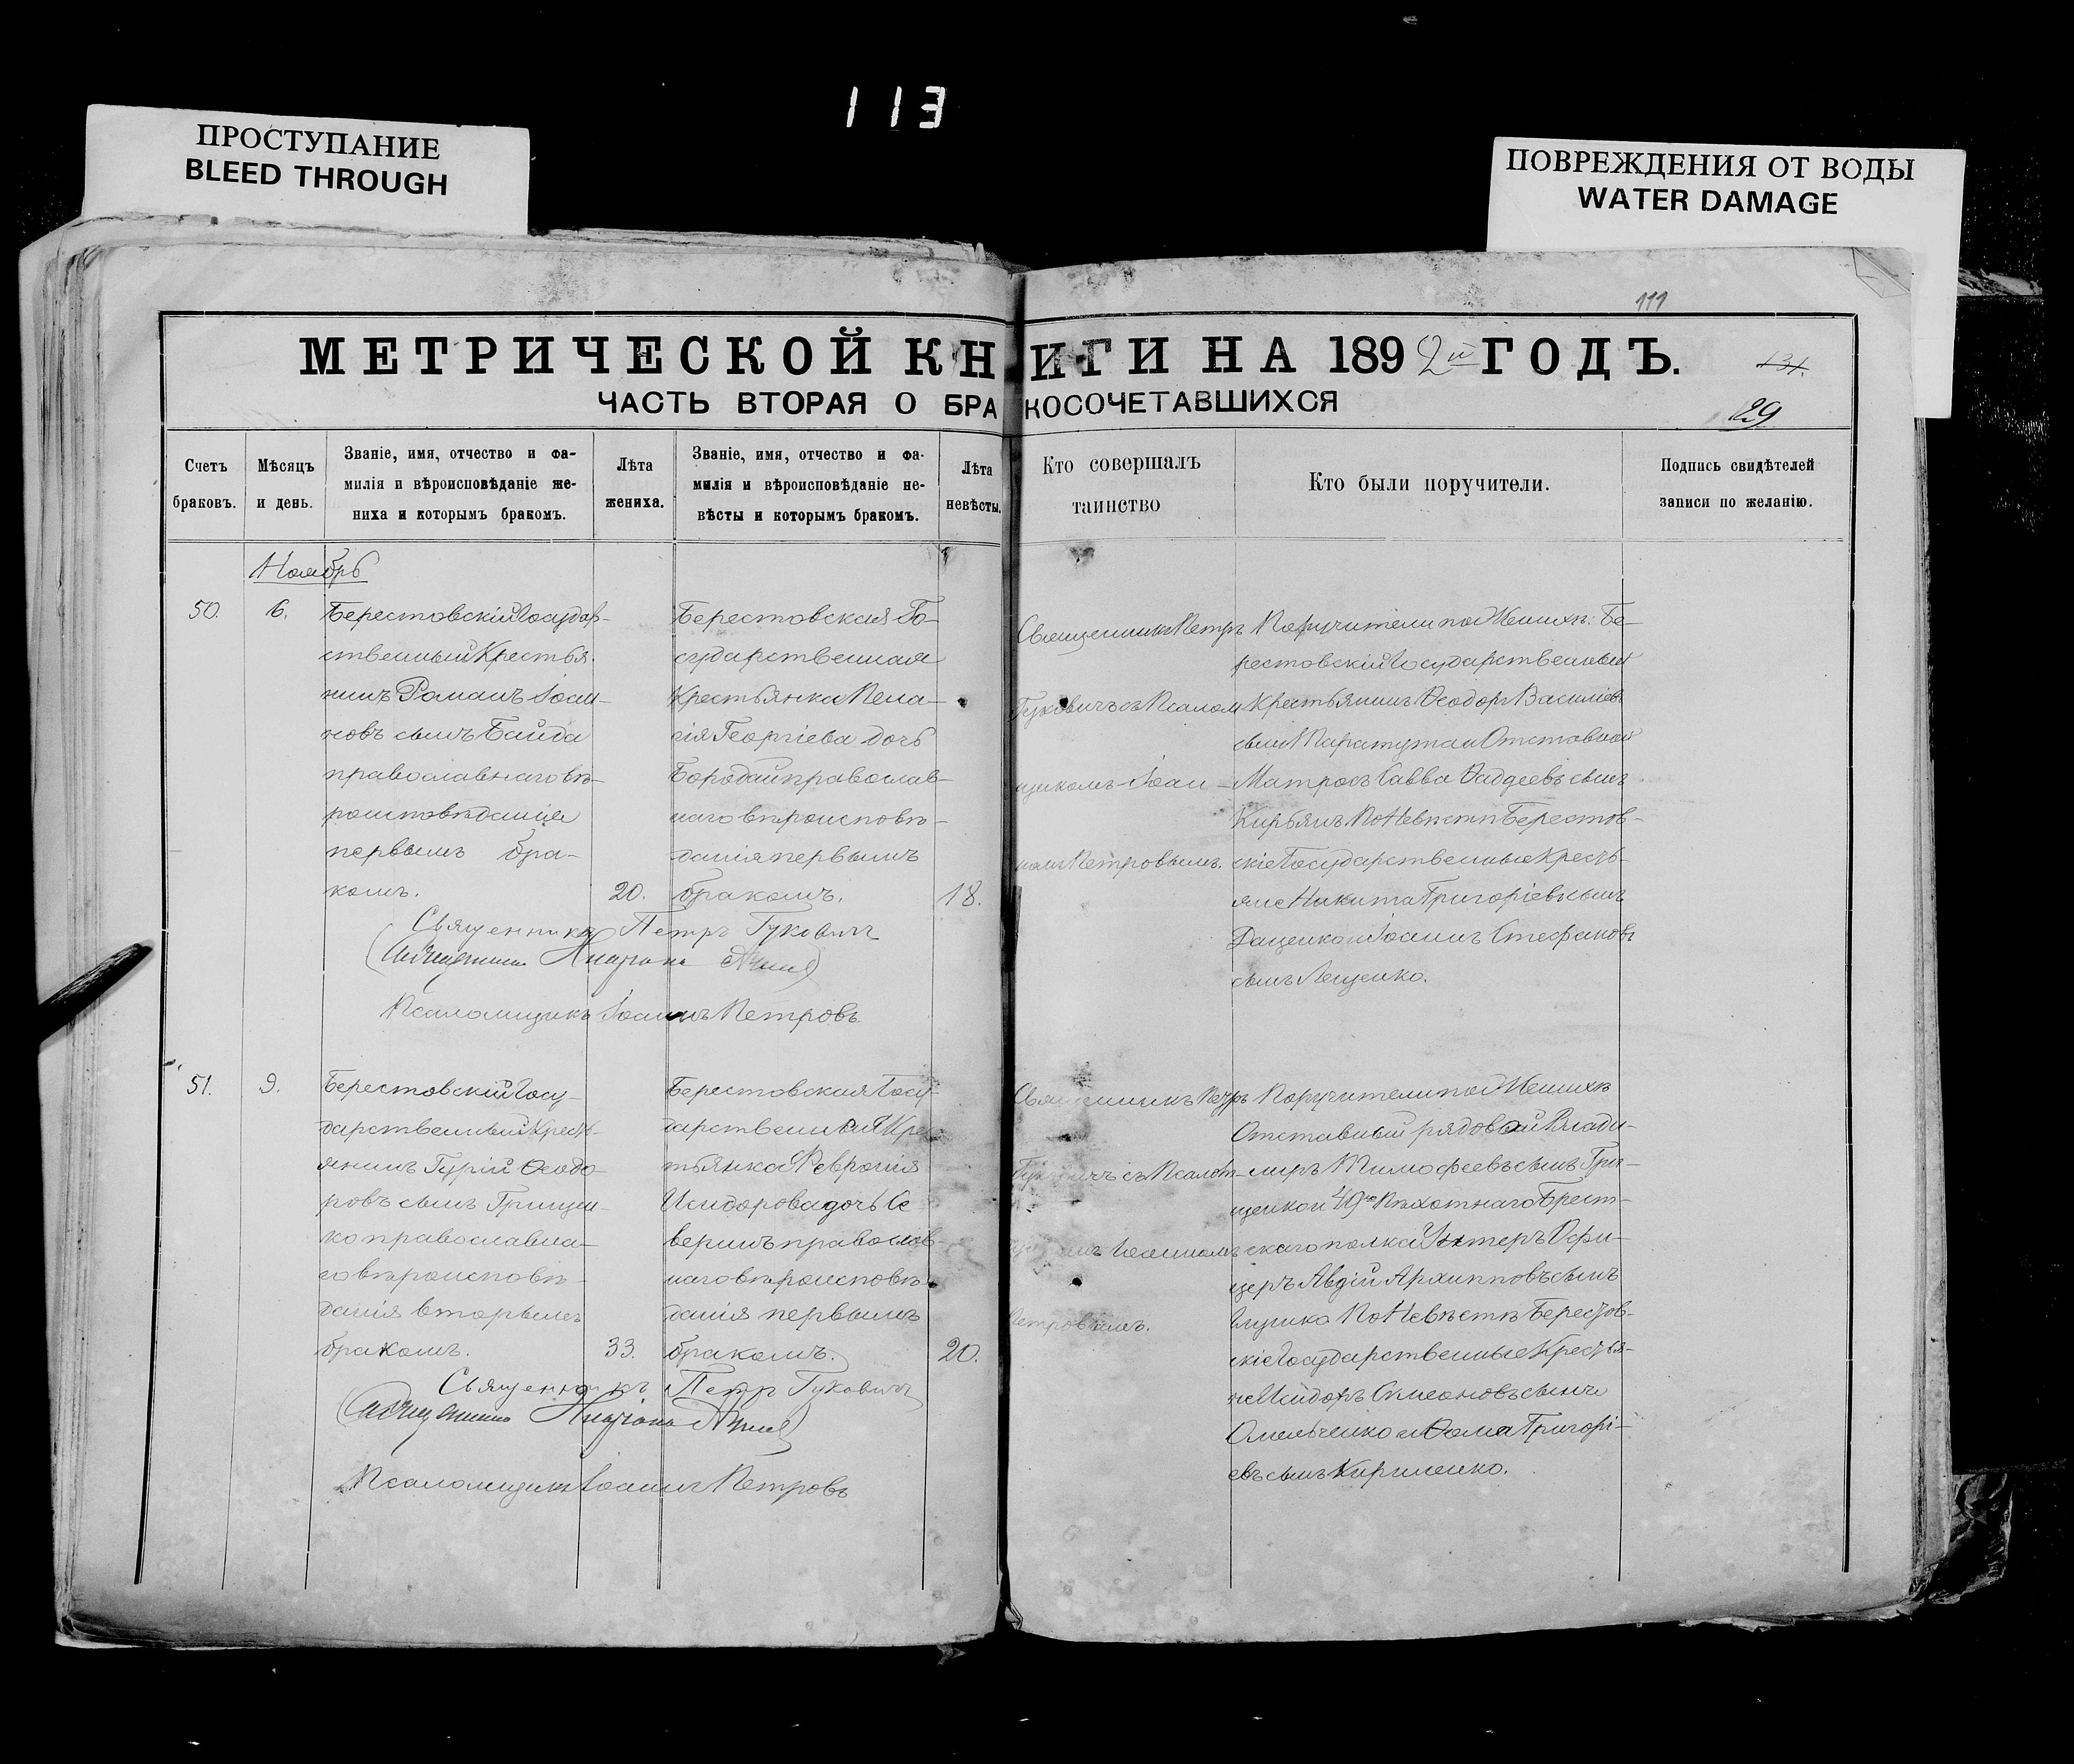 113
ПРОСТУПАНИЕ
BLEED THROUGH
ПОВРЕЖДЕНИЯ ОТ ВОДЫ
WATER DAMAGE
111
МЕТРИЧЕСКОЙ КНИГИ НА 1892й ГОДЪ.
131.
ЧАСТЬ ВТОРАЯ О БРАКОСОЧЕТАВШИХСЯ
29
Счетъ
браковъ.
Мѣсяцъ
и день.
Званіе, имя, отчество и фа-
милія и вѣроисповѣданіе же-
ниха и которымъ бракомъ.
Лѣта
жениха.
Званіе, имя, отчество и фа-
милія и вѣроисповѣданіе не-
вѣсты и которымъ бракомъ.
Лѣта
невѣсты.
Кто совершалъ
таинство
Кто были поручители.
Подпись свидѣтелей
записи по желанію.
Ноябрь
50.
6.
Берестовскій Государ-
ственный Крестья-
нинъ Романъ Іоан-
новъ сынъ Байда
православнаго вѣ-
роисповѣданія
первымъ бра-
комъ.
20.
Берестовская Го-
сударственная
Крестьянка Пела-
гія Георгіева дочь
Бородай православ-
наго вѣроисповѣ-
данія первымъ
бракомъ.
18.
Священникъ Петръ
Гуковичъ съ Псалом
щикомъ Іоан-
номъ Петровымъ.
Поручители по Женихѣ: Бе-
рестовскій Государственный
Крестьянинъ Ѳеодоръ Василіев
сынъ и Отставной
Матросъ Савва Ѳаддеевъ сынъ
Кирьянъ По Невѣстѣ Берестов-
скіе Государственные Кресть-
яне Никита Григоріевъ сынъ
Даценко и Іоаннъ Стефановъ
сынъ Лещенко.
Священникъ Петръ Гуковичъ
Псаломщикъ Іоаннъ Петровъ
51.
9.
Берестовскій Госу-
дарственный Кресть-
янинъ Гурій Ѳеодо-
ровъ сынъ Грицен-
ко православна-
го вѣроисповѣ-
данія вторымъ
бракомъ.
33.
Берестовская Госу-
дарственная Крес-
тьянка Феvронія
Исидорова дочь Се
веринъ православ-
наго вѣроисповѣ-
данія первымъ
бракомъ.
20.
Священникъ Петръ
Гуковичъ съ Псалом-
щикомъ Іоанномъ
Петровымъ.
Поручители по Женихѣ
Отставный рядовой Влади-
миръ Тимофеевъ сынъ Гри-
ценко и 49го Пѣхотнаго Брест-
скаго полка Унтеръ Офи-
церъ Авдій Архипповъ сынъ
По Невѣстѣ Берестов-
скіе Государственные Крестья-
не Исидоръ Симеоновъ сынъ
Омельченко и Ѳома Григорі-
евъ сынъ Кириленко.
Священникъ Петръ Гуковичъ
Псаломщикъ Іоаннъ Петровъ